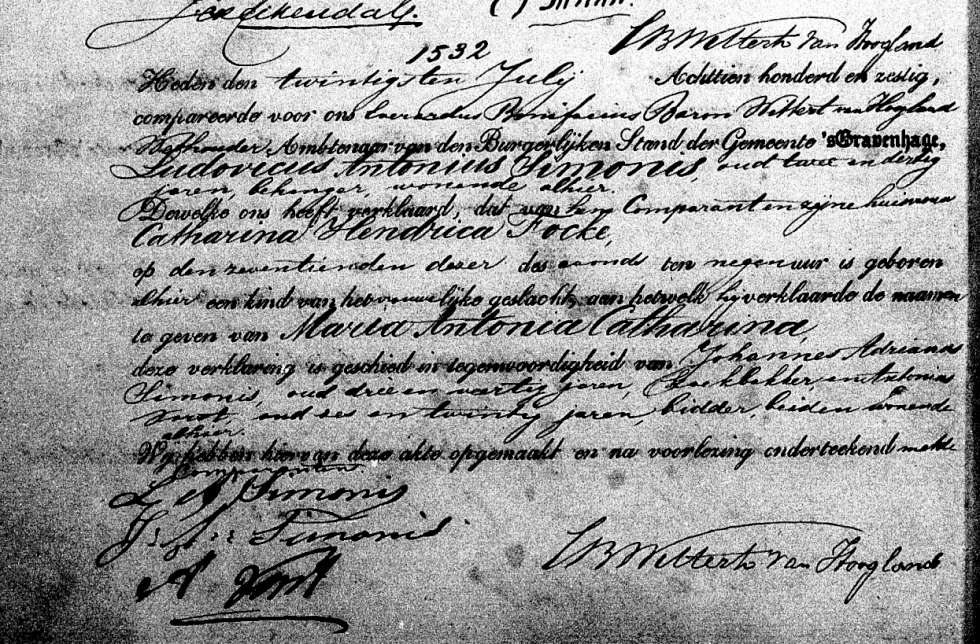 1532
Wittert van Hoogland
Heden den twintigsten July Achttien honderd en zestig,
compareerde voor ons Bonifacius Baron Wittert van Hoogland
Wethouder Ambtenaar van den Burgerlijken Stand der Gemeente 'sGravenhage,
Ludovicus Antonius Simonis, oud twee en dertig
jaren, behanger, wonende alhier.
Dewelke ons heeft verklaard, dat van hem Comparant en zijne huisvrouw
Catharina Hendrica Focke,
op den zeventienden dezer des avonds ten negen uur is geboren
alhier een kind van het vrouwelijke geslacht, aan hetwelk hij verklaarde de namen
te geven van Maria Antonia Catharina,
deze verklaring is geschied in tegenwoordigheid van Johannes Adrianus
Simonis, oud drie en veertig jaren, en Antonius
oud zes en twintig jaren, bidder, beiden wonende
alhier.
Wij hebben hiervan deze akte opgemaakt en na voorlezing onderteekend met de
Comparanten
L A Simonis
Simonis
A
Wittert van Hoogland